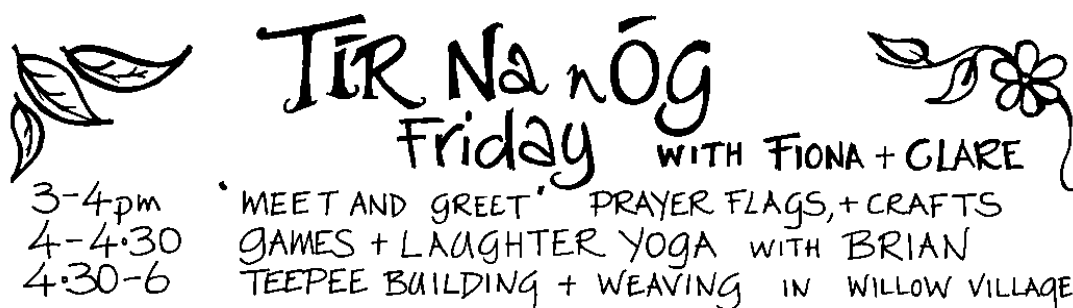 TÍR Na nÓg
Friday WITH FIONA + CLARE
3-4pm 'MEET AND GREET' PRAYER FLAGS, + CRAFTS
4-4·30 GAMES + LAUGHTER YOGA WITH BRIAN
4·30-6 TEEPEE BUILDING + WEAVING IN WILLOW VILLAGE